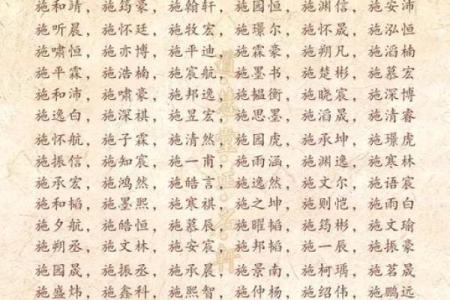 施和靖，施筠豪，施翰轩，施园恒，施渊信，施安沛
施听晨，施怀廷，施牧宏，施璟尔，施怀晟，施泓恒
施啸恒，施亦博，施平迪，施霖豪，施朔凡，施滔楠
施平霖，施浩楠，施宸航，施墨书，施楚彬，施慕宏
施和沛，施啸豪，施邦逸，施韫衡，施晓宸，施深博
施逸白，施深祺，施昱宏，施思墨，施滔晟，施清睿
施怀航，施子霖，施清然，施园虎，施承坤，施璟虎
施振信，施知宸，施一甫，施雨涵，施渊逸，施寒林
施承宏，施鸿然，施皓言，施逸然，施文尔，施语宸
施和韬，施墨熙，施寒祺，施之坤，施则恺，施雨白
施夕航，施皓恒，施慕辰，施曜韬，施筠彬，施文瑜
施朔丞，施文林，施安宸，施邦韬，施一辰，施振豪
施园晟，施振丞，施承晨，施景南，施柯瑀，施茗晟
施盛炜，施鑫科，施熙智，施仲杨，施绍伟，施鹏远